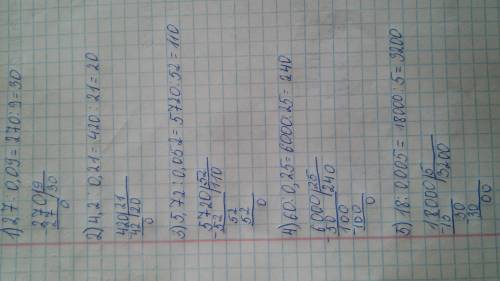 1) 27 : 0,09 = 270 : 9 = 30
270 | 9
27 | 30
0
2) 4,2 : 0,21 = 420 : 21 = 20
420 | 21
42 | 20
0
3) 5,72 : 0,052 = 5720 : 52 = 110
5720 | 52
-52 | 110
52
52
0
4) 60 : 0,25 = 6000 : 25 = 240
6000 | 25
-50 | 240
100
-100
0
5) 18 : 0,005 = 18000 : 5 = 3200
18000 | 5
-15 | 3200
30
30
00